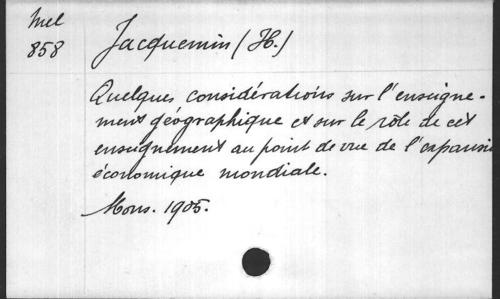 Mel
858
Jacquemin (H.)
Quelques considérations sur l'enseigne-
ment géographique et sur le rôle de cet
enseignement au point de vue de l'expansi
économique mondiale.
Mons. 1905.